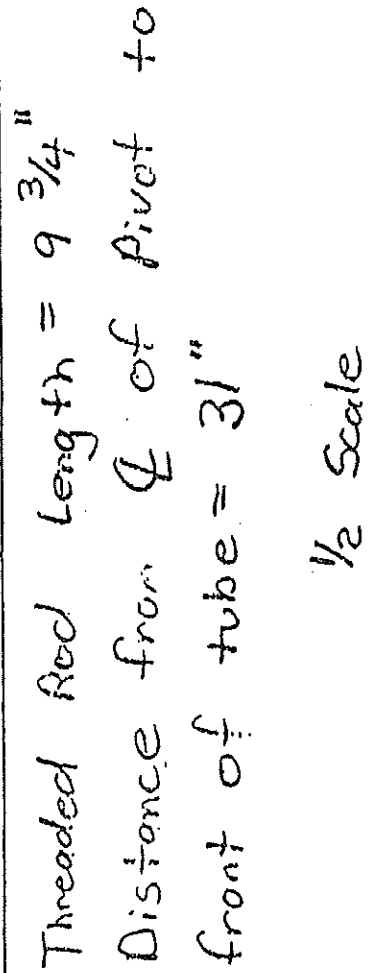 Threaded Rod Length = 9 3/4"
Distance from ℄ of Pivot to
front of tube = 31"
1/2 Scale